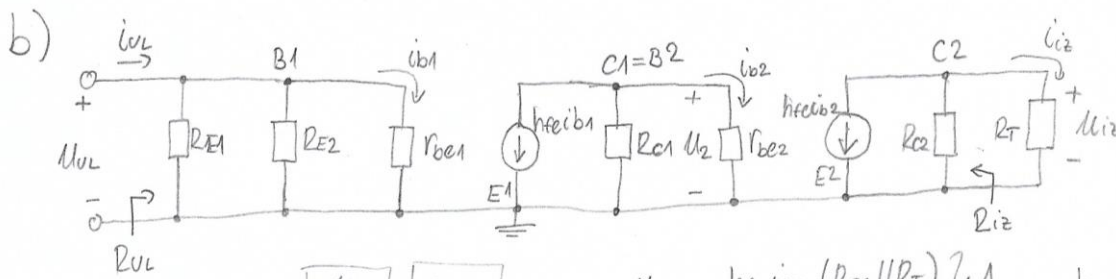 b)
iUL
B1
ib1
C1=B2
ib2
C2
iiz
+
uUL
-
RE1
RE2
rbe1
hfeib1
E1
RC1
+
u2
-
rbe2
hfeib2
E2
RC2
RT
+
uiz
-
RUL
Riz
(RC2||RT)